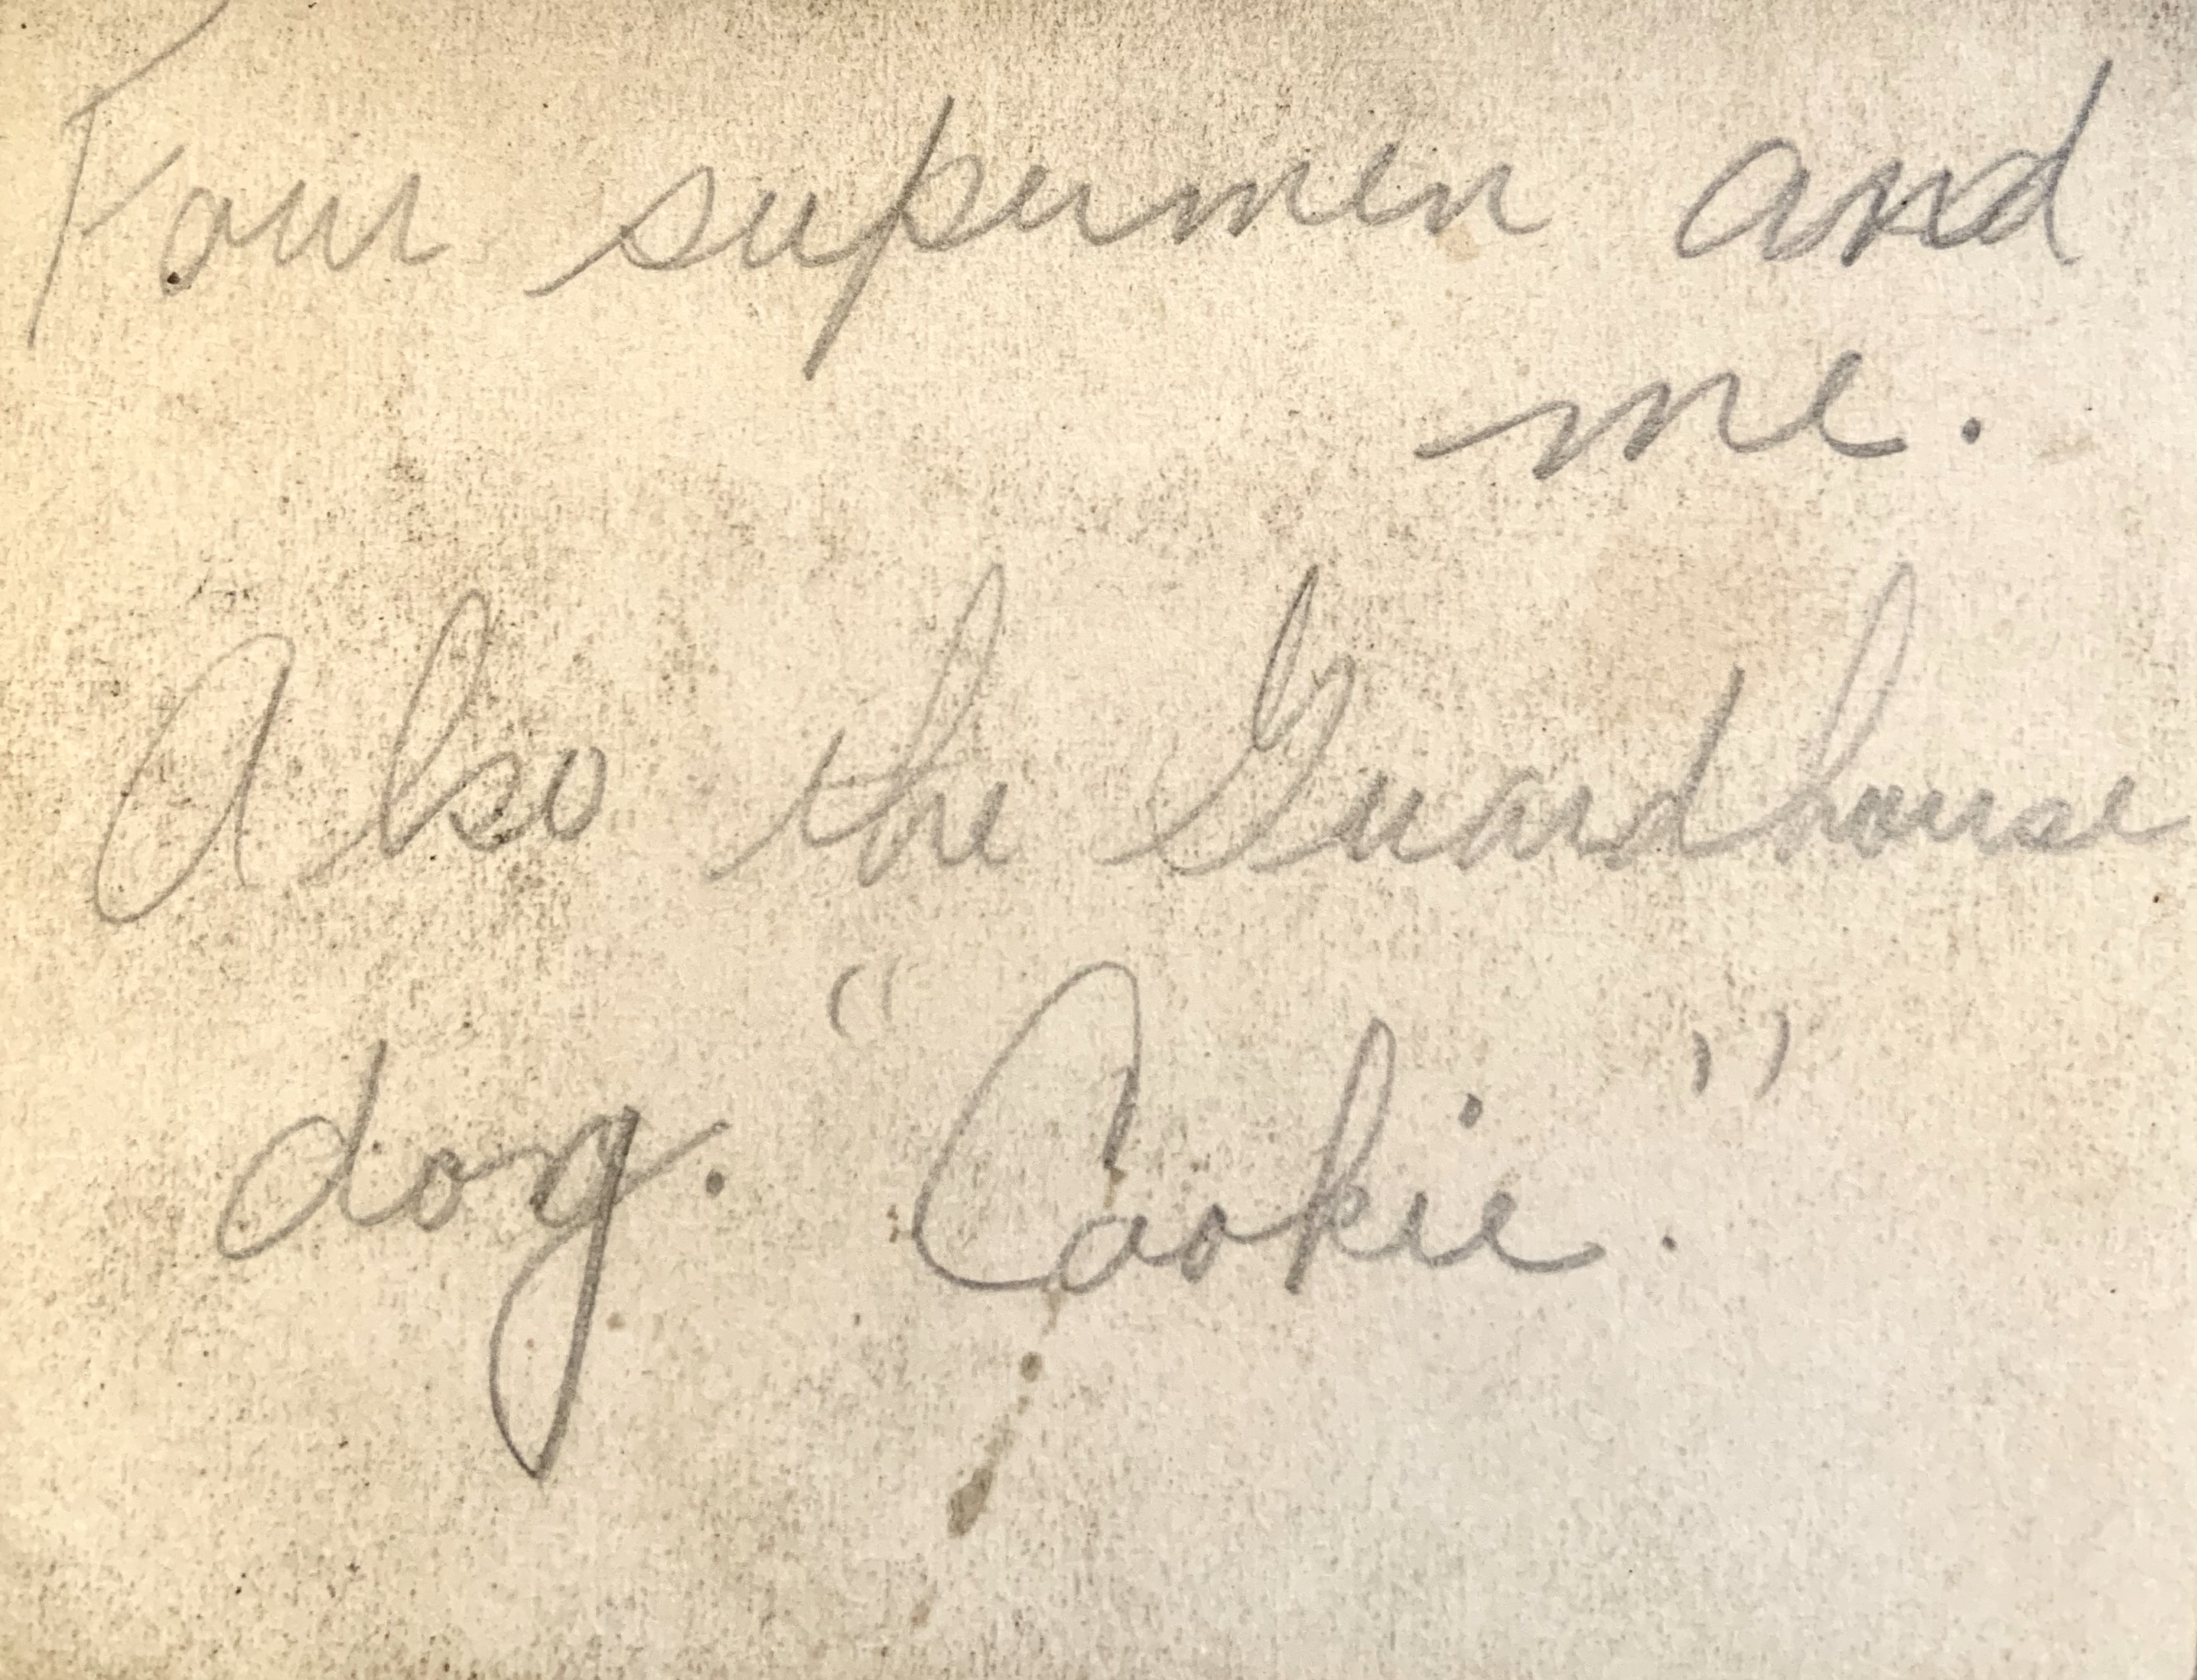 Four supermen and
me.
Also the Guardhouse
dog. "Cookie."